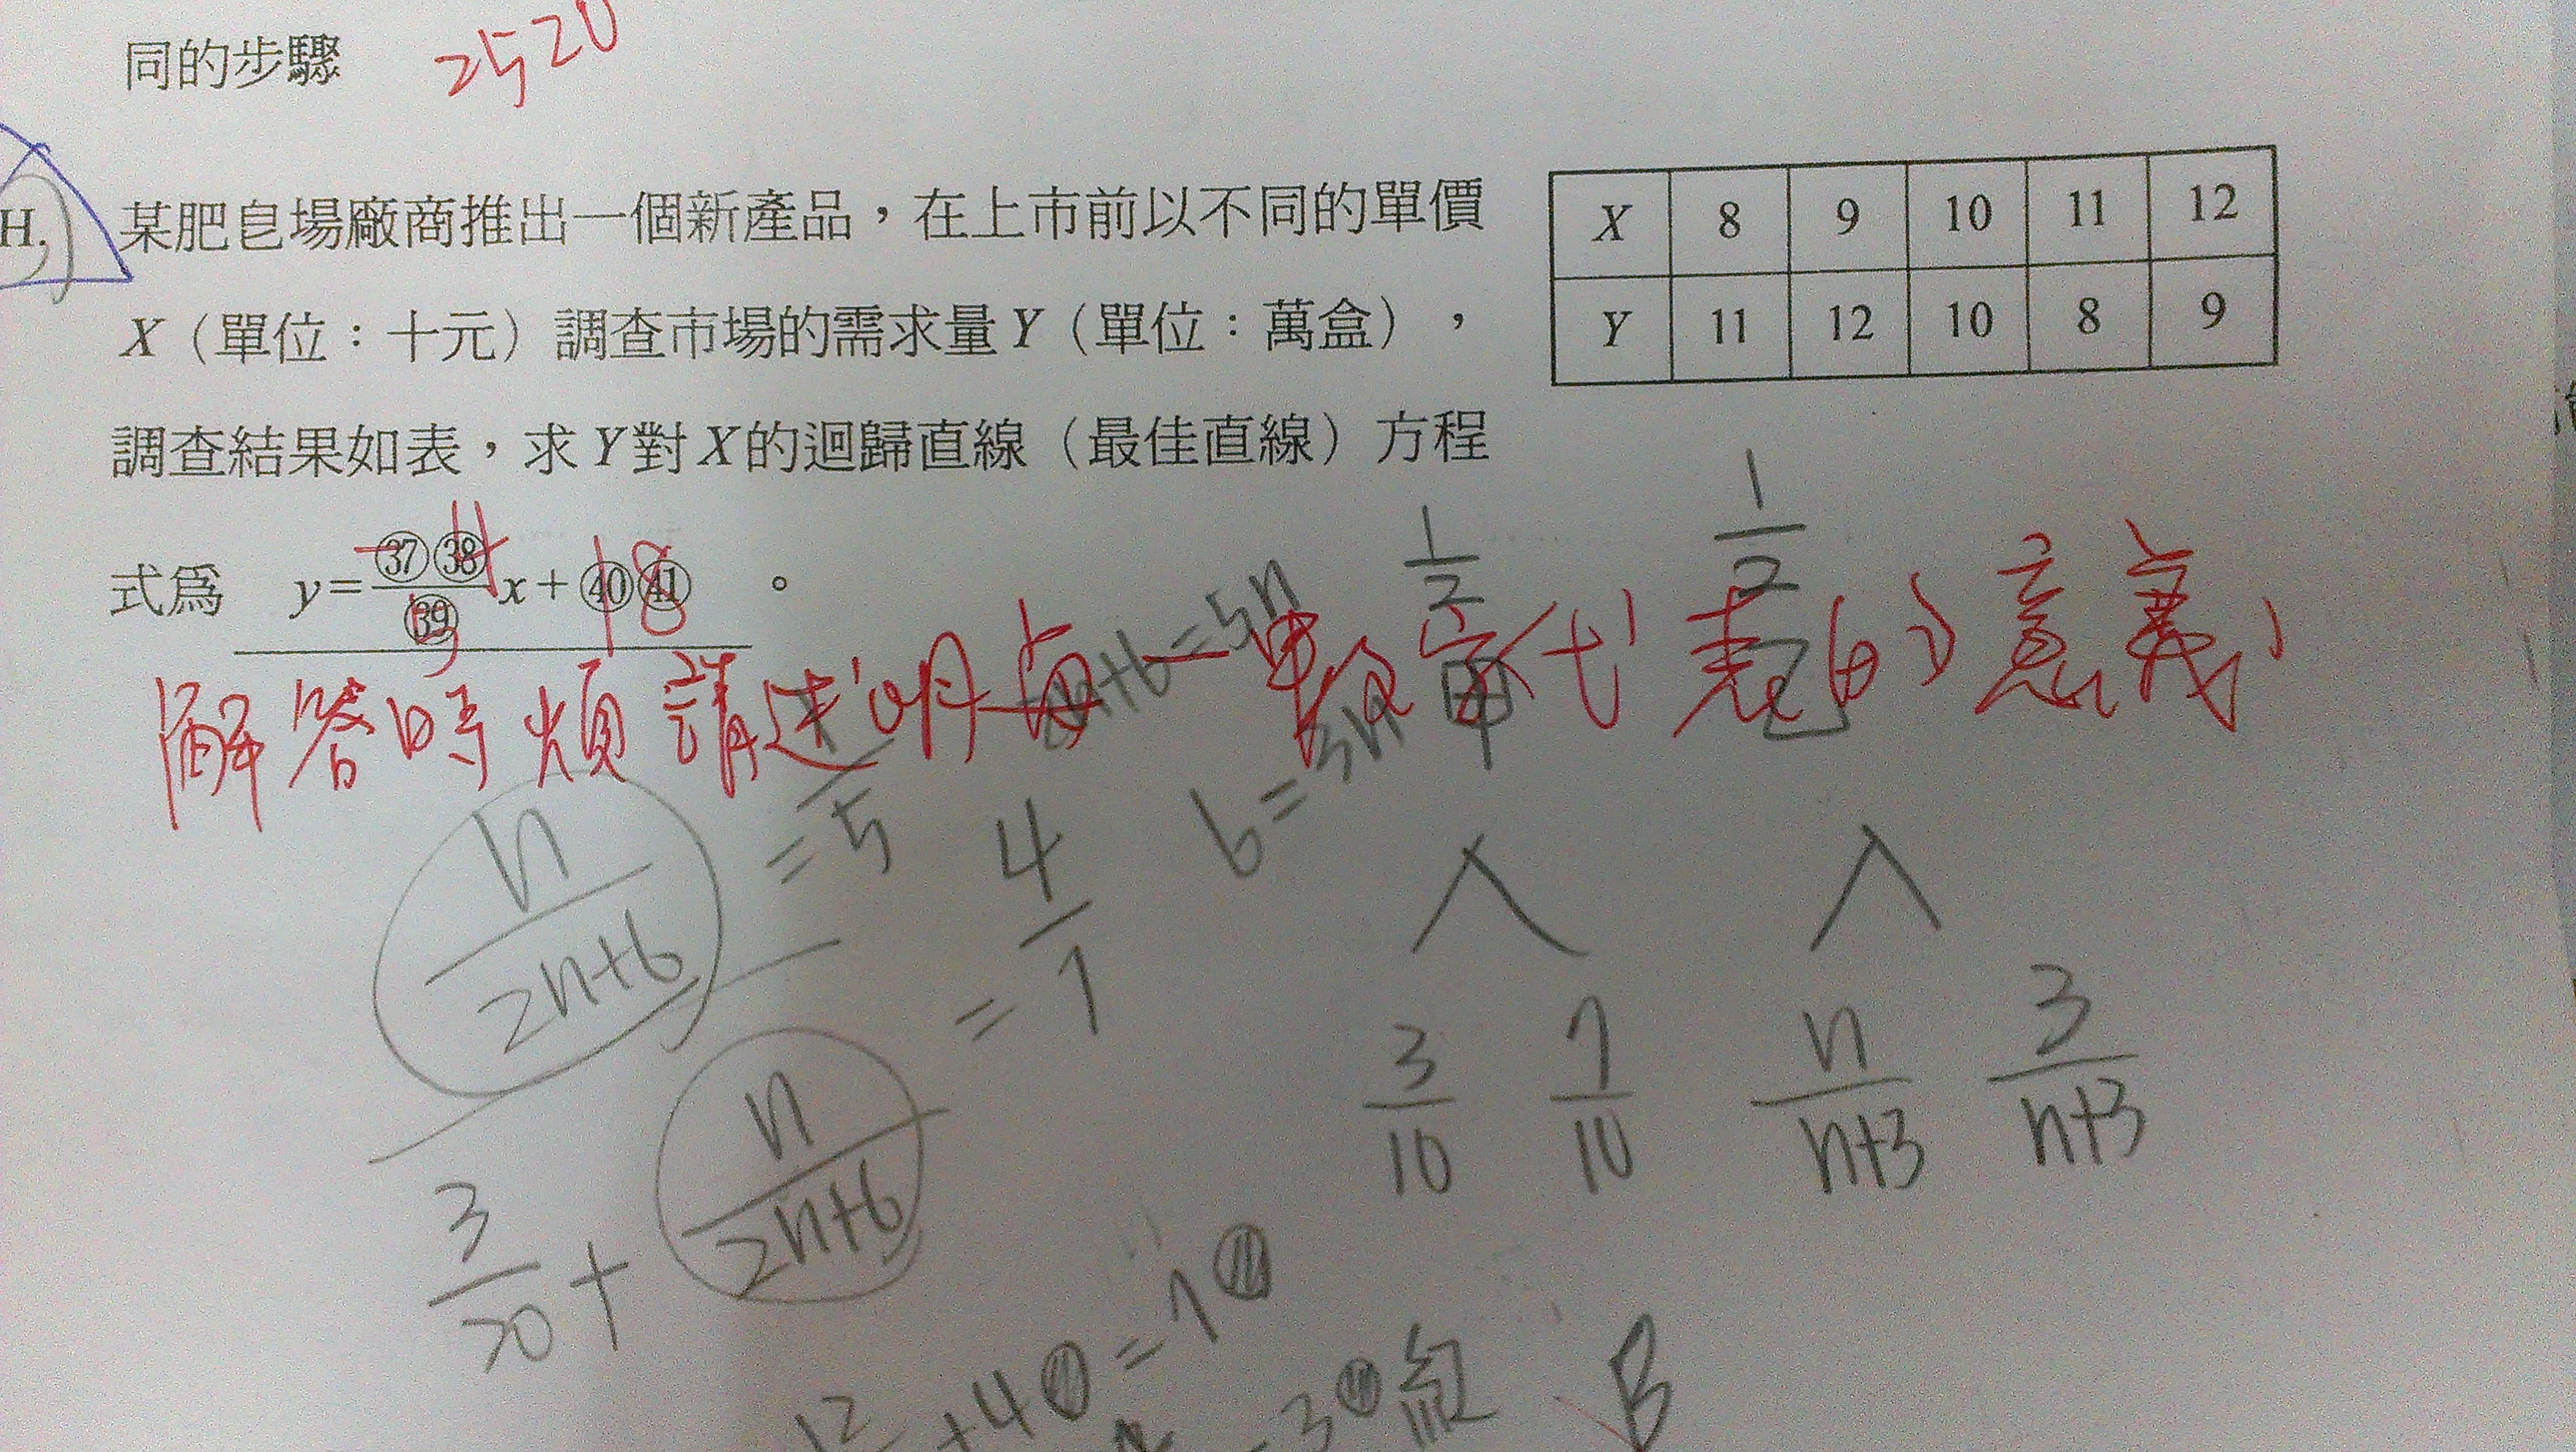 同的步驟 2520
H. 某肥皂場廠商推出一個新產品，在上市前以不同的單價
X（單位：十元）調查市場的需求量Y（單位：萬盒），
調查結果如表，求Y對X的迴歸直線（最佳直線）方程
式為 y=㊲㊳/㊴ x+㊵㊶。
-4/5 18
X 8 9 10 11 12
Y 11 12 10 8 9
解答時煩請述明每一數字代表的意義
1/2 1/2
甲 乙
2n+6=5n
6=3n
n/2n+6 = 1/5
3/20 + n/2n+6
= 4/7
3/10 7/10 n/n+3 3/n+3
紅 B